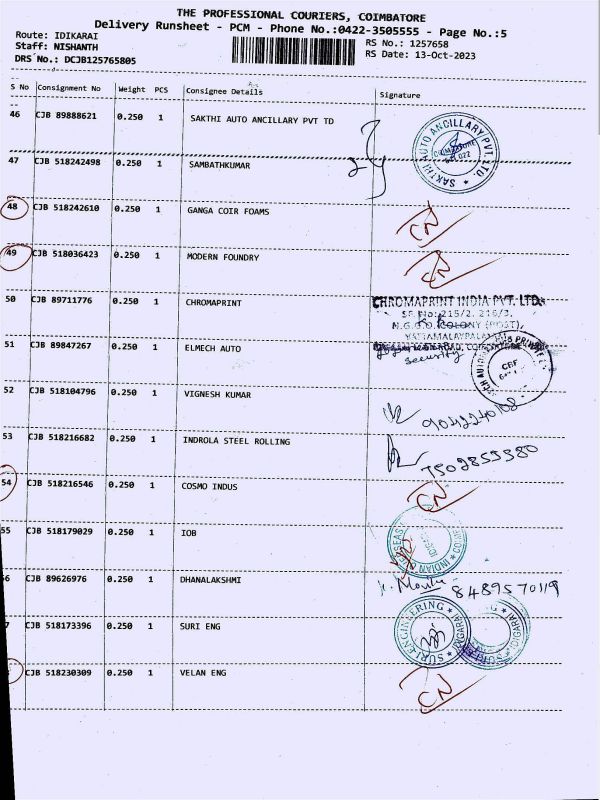 THE PROFESSIONAL COURIERS, COIMBATORE
Delivery Runsheet - PCM - Phone No.:0422-3505555 - Page No.:5
Route: IDIKARAI
RS No.: 1257658
Staff: NISHANTH
RS Date: 13-Oct-2023
DRS No.: DCJB125765805
S No Consignment No Weight PCS Consignee Details Signature
46 CJB 89888621 0.250 1 SAKTHI AUTO ANCILLARY PVT TD
SAKTHI AUTO ANCILLARY PVT. LTD.
47 CJB 518242498 0.250 1 SAMBATHKUMAR
48 CJB 518242610 0.250 1 GANGA COIR FOAMS CN
49 CJB 518036423 0.250 1 MODERN FOUNDRY CN
50 CJB 89711776 0.250 1 CHROMAPRINT
CHROMAPRINT INDIA PVT. LTD.
SF.No:215/2, 216/3,
N.G.G.O.COLONY (POST),
51 CJB 89847267 0.250 1 ELMECH AUTO
security
CBF
52 CJB 518104796 0.250 1 VIGNESH KUMAR 9042240108
53 CJB 518216682 0.250 1 INDROLA STEEL ROLLING 7502855380
54 CJB 518216546 0.250 1 COSMO INDUS CN
55 CJB 518179029 0.250 1 IOB
INDIAN OVERSEAS
6 CJB 89626976 0.250 1 DHANALAKSHMI 8489570119
7 CJB 518173396 0.250 1 SURI ENG
SURI ENGINEERING
IDIGARAI
CJB 518230309 0.250 1 VELAN ENG CN